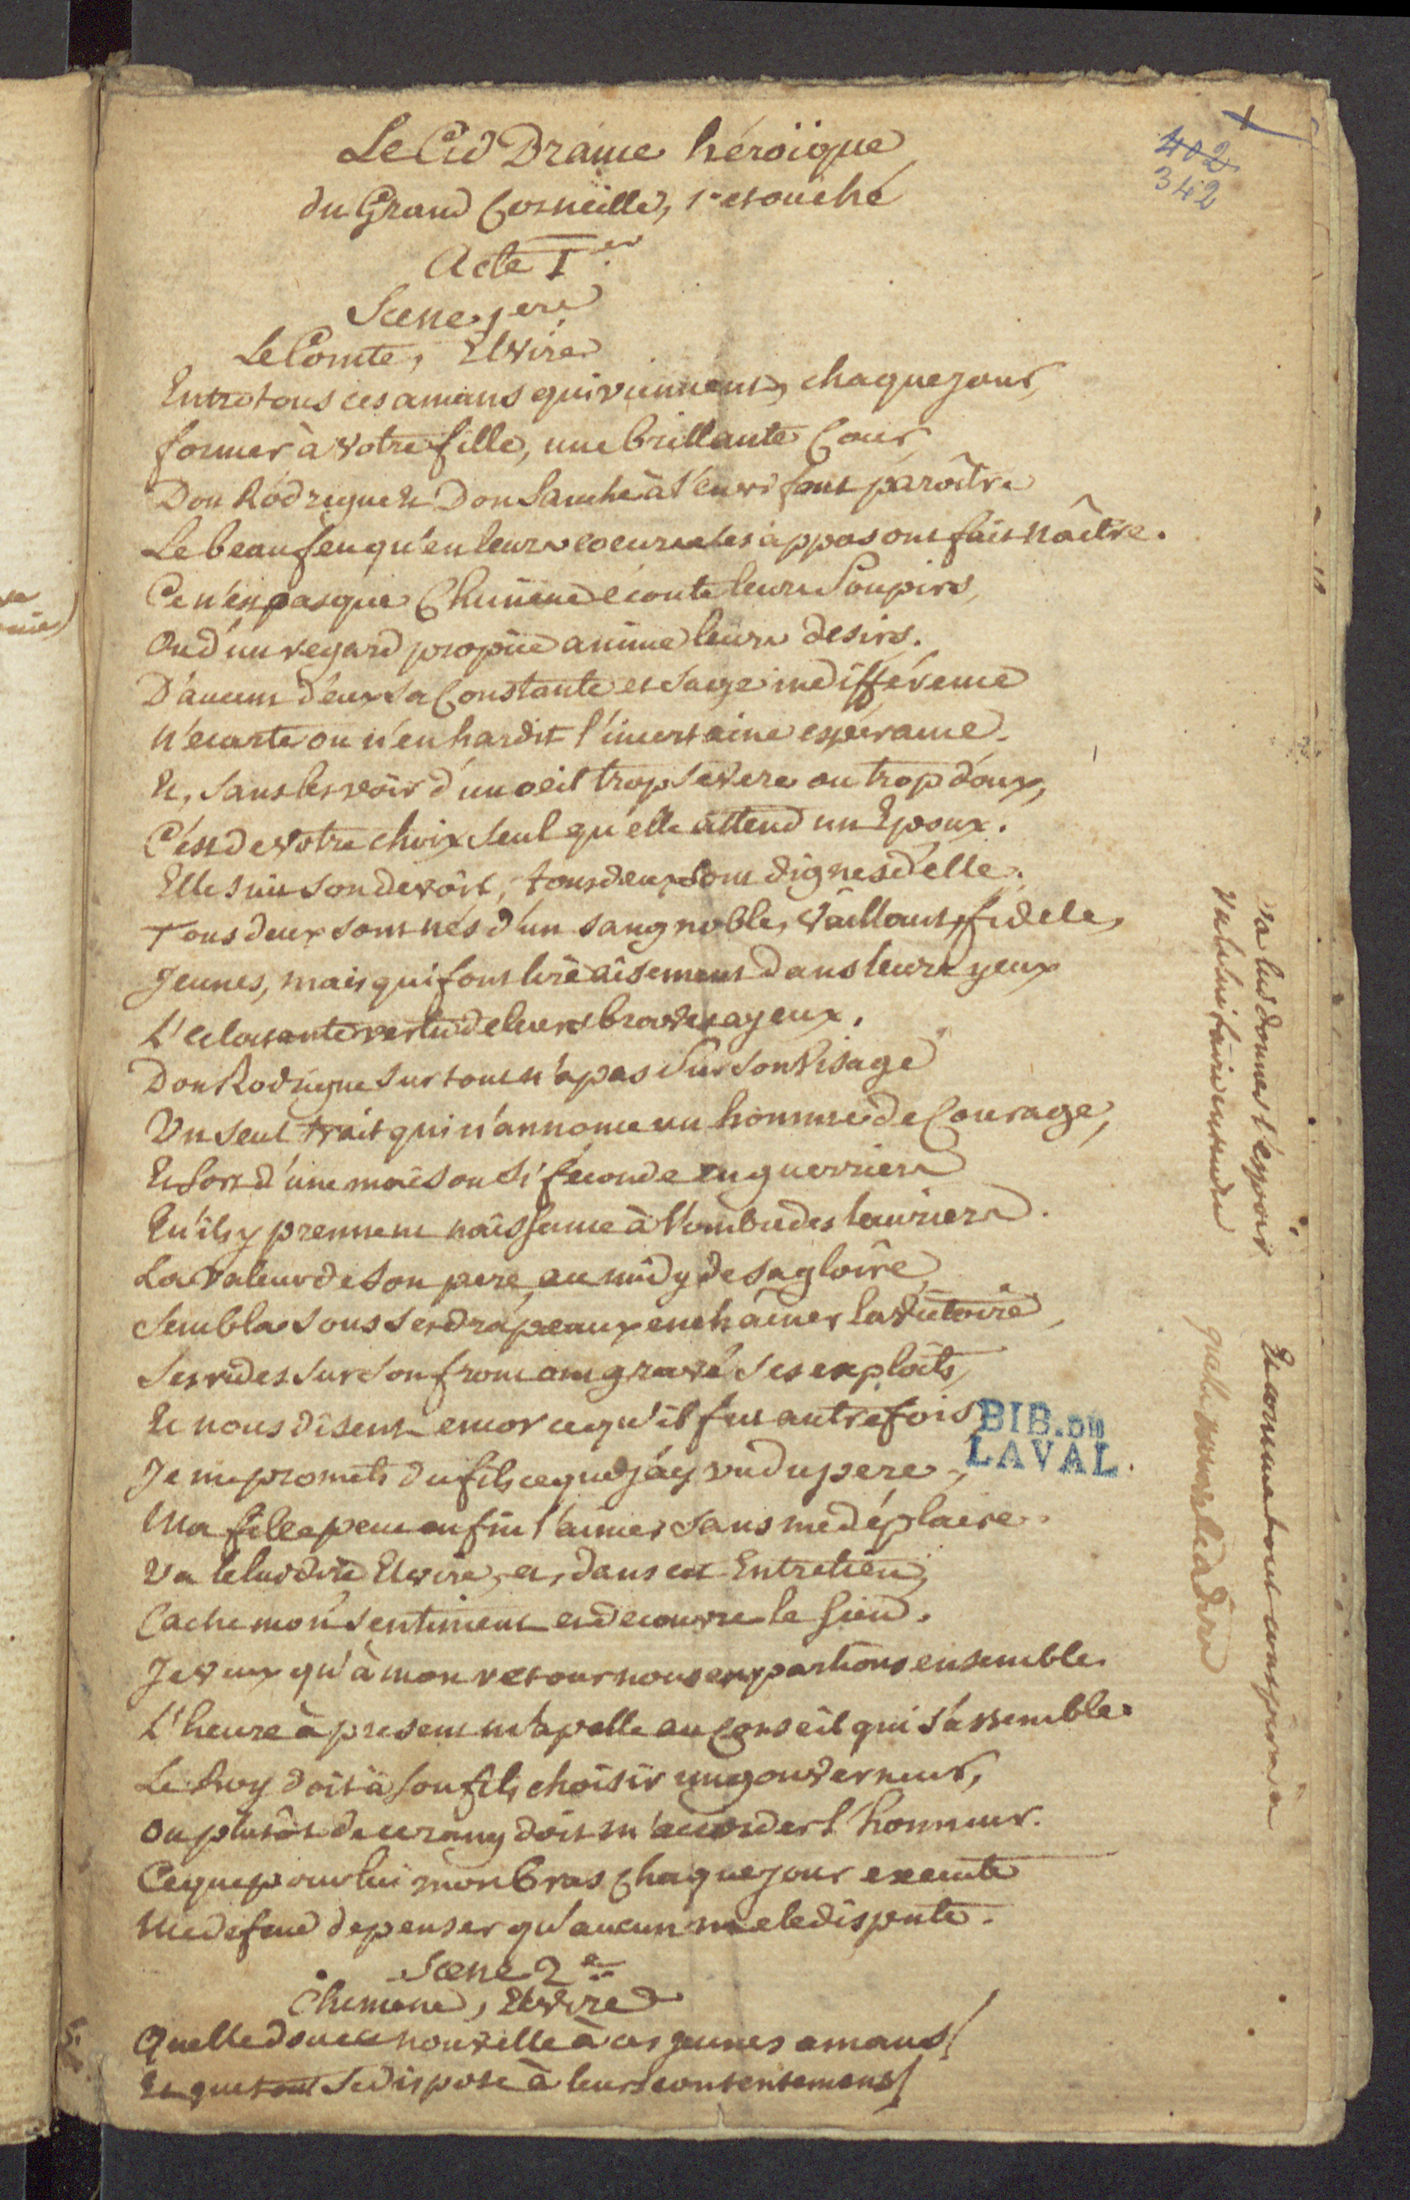 Le Cid Drame héroïque
du Grand Corneille, retouché
402
342
Acte Ier
Scene 1ere
Le Comte, Elvire
Entre tous ces amans qui viennent, chaque jour,
former à votre fille, une brillante Cour,
Don Rodrigue et Don Sanche à l'envi font paroître
Le beau feu qu'en leurs coeurs ses appas ont fait naître.
Ce n'est pas que Chimene écoute leurs Soupirs,
Ou d'un regard propice anime leurs desirs.
D'aucun d'eux sa Constante et sage indifférence
N'écarte ou n'enhardit l'incertaine espérance.
Et, sans les voir d'un oeil trop severe ou trop doux,
C'est de votre choix seul qu'elle attend un Epoux.
Elle suit son devoir, tous deux sont dignes d'elle.
Tous deux sont nés d'un sang noble, vaillant, fidele,
Jeunes, mais qui font lire aisement dans leurs yeux
L'eclatante vertu de leurs braves ayeux.
Don Rodrigue surtout n'a pas sur son Visage
Un seul trait qui n'annonce un homme de Courage,
Et sort d'une maison si féconde en guerriers
Qu'ils y prennent naissance à l'ombre des lauriers.
La valeur de son pere, au midy de sa gloire,
Sembla sous ses drapeaux enchaîner la Victoire,
Ses rides sur son front ont gravé ses exploits,
Et nous disent encor ce qu'il fut autrefois.
BIB. DE
LAVAL.
Je me promets du fils ce que j'ay vu du pere,
Ma fille peut enfin l'aimer sans me déplaire.
Va le lui dire Elvire, et, dans cet Entretien,
Cache mon sentiment et decouvre le sien.
Je veux qu'à mon retour nous en parlions ensemble.
L'heure à present m'apelle au Conseil qui s'assemble.
Le Roy doit à son fils choisir un gouverneur,
Ou plutôt de ce rang doit m'accorder l'honneur.
Ce que pour lui mon bras chaque jour execute
Me defend de penser qu'aucun me le dispute.
Scene 2e
Chimene, Elvire
Quelle douce nouvelle à ces jeunes amans!
Et que tout se dispose à leurs contentemens!
Va lui donner l'espoir
Va lui faire entendre
Et comme tout conspire à